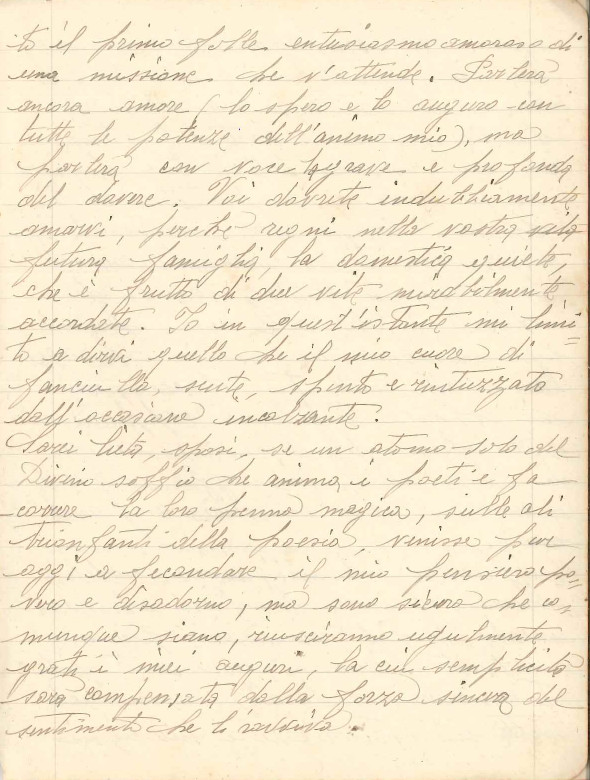 to il primo folle entusiasmo amoroso di
una missione che v'attende. Parlerà
ancora amore (lo spero e lo auguro con
tutte le potenze dell'animo mio), ma
parlerà con voce grave e profonda
del dovere. Voi dovrete indubbiamente
amarvi, perché regni nella vostra vita
futura famiglia, la domestica quiete,
che è frutto di due vite mirabilmente
accordate. Io in quest'istante mi limi=
to a dirvi quello che il mio cuore di
fanciulla, sente, spinto e rintuzzato
dall'occasione incalzante.
Sarei lieta, sposi, se un atomo solo del
Divino soffio che anima i poeti e fa
correre la loro penna magica, sulle ali
trionfanti della poesia, venisse pur
oggi a fecondare il mio pensiero po=
vero e disadorno, ma sono sicura che co=
munque siano, riusciranno ugulmente
grati i miei auguri, la cui semplicità
sarà compensata dalla forza sincera del
sentimento che li ravviva.